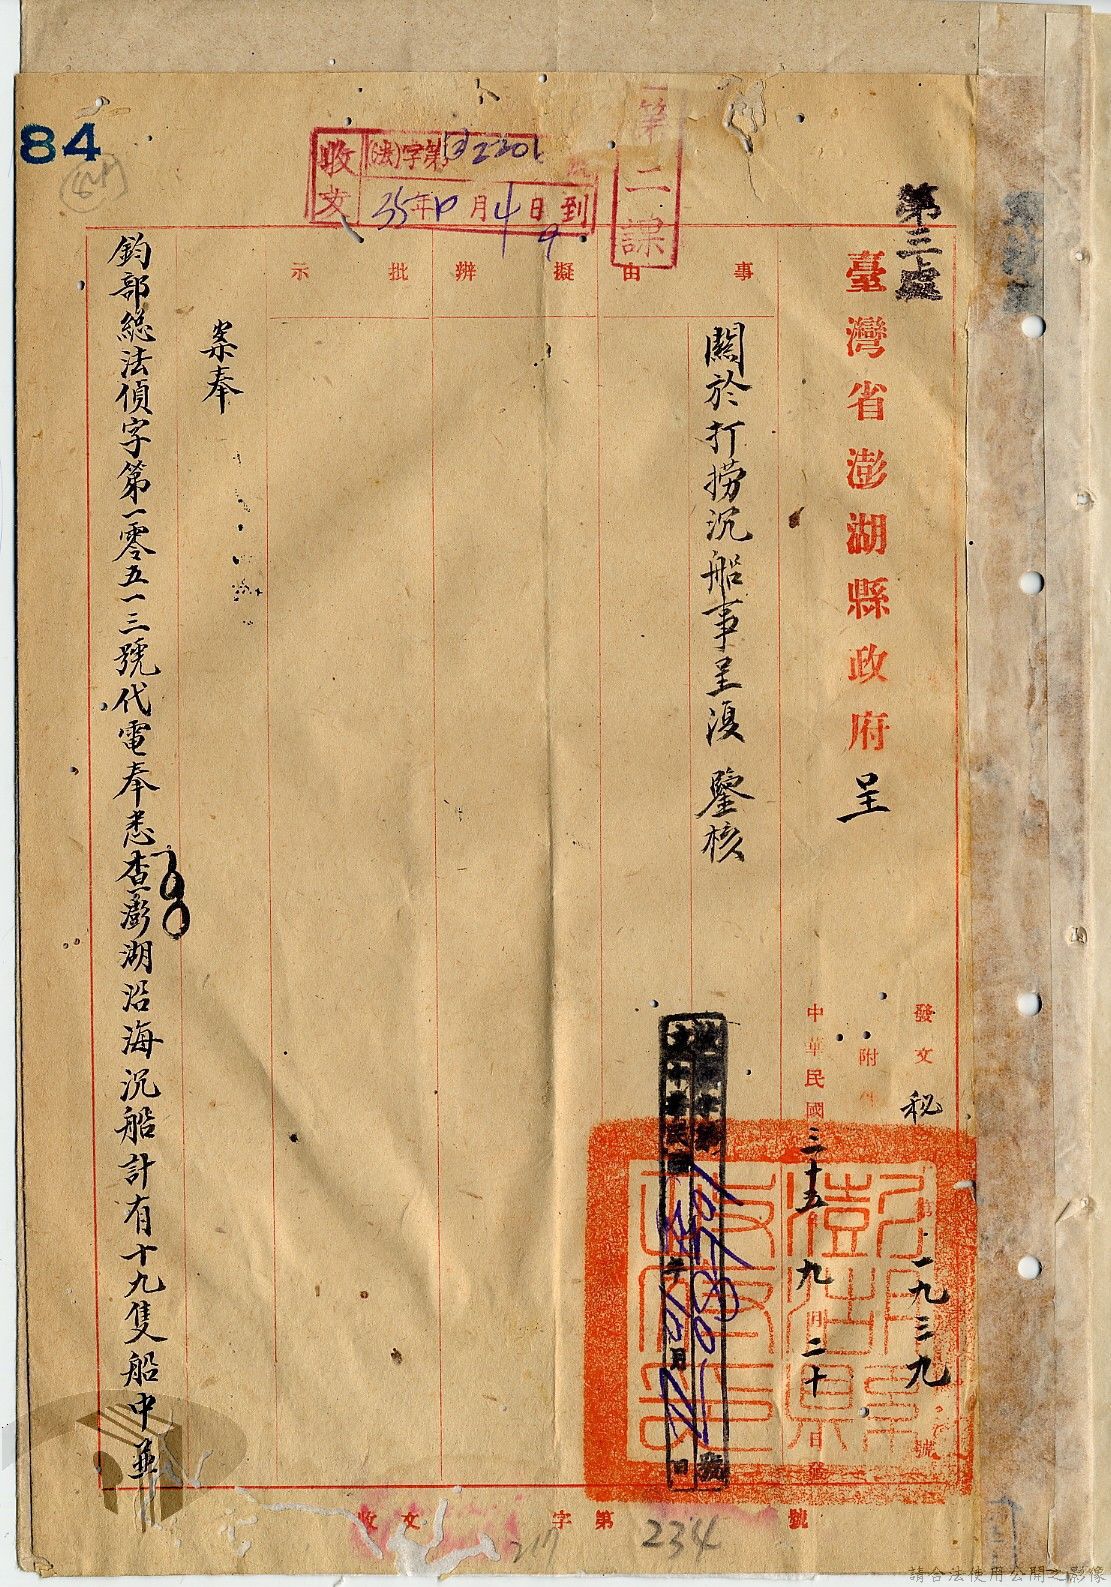 84
第二課
收文
(法)字第 2301 號
35年10月4日到
第三處
臺灣省澎湖縣政府 呈
發文 秘 第一九三九號
附
中華民國三十五 九月二十日發
事由
擬辦
批示
關於打撈沉船事呈復 鑒核
案奉
鈞部總法偵字第一零五一三號代電奉悉查澎湖沿海沉船計有十九隻船中並
收文 字第 號
217
234
請合法使用公開之影像